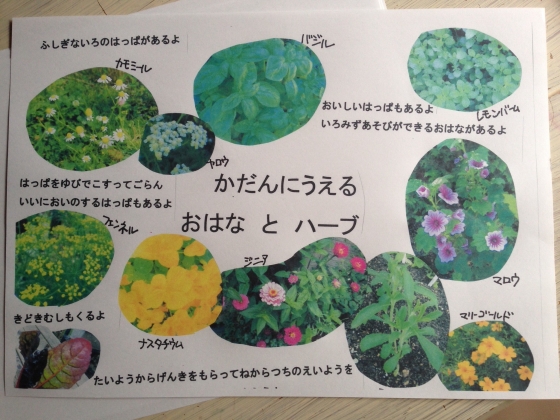 ふしぎないろのはっぱがあるよ
カモミール
バジル
レモンバーム
おいしいはっぱもあるよ
いろみずあそびができるおはながあるよ
ヤロウ
はっぱをゆびでこすってごらん
いいにおいのするはっぱもあるよ
かだんにうえる
おはな と ハーブ
フェンネル
ジニア
マロウ
きどきむしもくるよ
ナスタチウム
マリーゴールド
たいようからげんきをもらってねからつちのえいようを